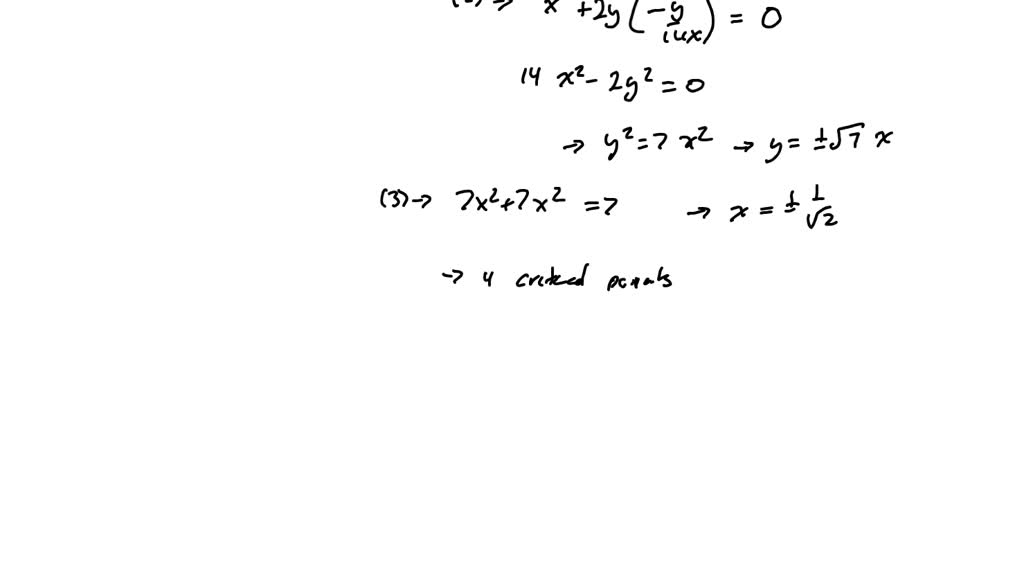 (2) → x + 2y (-y/14x) = 0
14 x² - 2y² = 0
→ y² = 7 x² → y = ±√7 x
(3) → 7x² + 7x² = 7 → x = ± 1/√2
→ 4 critical points